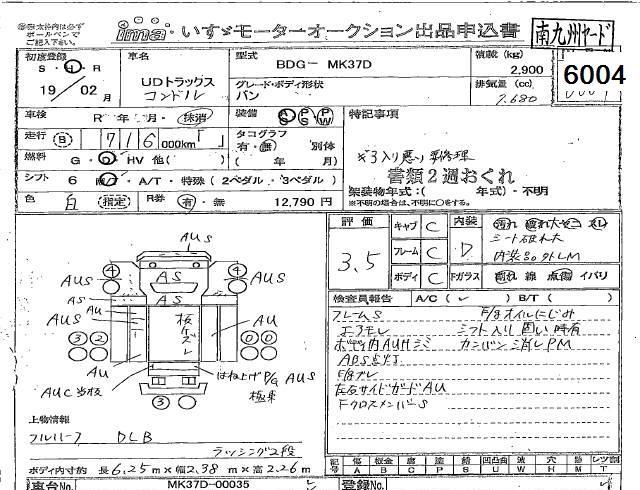 ※太枠内は必ず
ボールペンで
ご記入下さい。
ima いすゞモーターオークション出品申込書
南九州ヤード
6004
初度登録
S・H・R
19/02月
車名
UDトラックス
コンドル
型式
BDG- MK37D
グレード・ボディ形状
バン
積載 (kg)
2,900
排気量 (cc)
7.680
車検
R 年・月・抹消
装備
S PS PW
特記事項
走行 716,000km「 」
タコグラフ
有・無 別体
( 年 月)
燃料 G・D HV 他( )
シフト 6 M/T・A/T・特殊(2ペダル・3ペダル)
書類2週おくれ
架装物年式:( 年式)・不明
※不明の場合は、不明に〇をする。
色 白 (指定)
R券 有・無 12,790円
評価
3.5
キャブ C
フレーム C
ボディ C
内装
D
Fガラス
シート破れ大
内装品外しM
線 点傷 イバリ
検査員報告 A/C( ✓ ) B/T( )
フレームS
エアモレ
ABS点灯
左右サイドガードAU
FクロスメンバーS
F/gオイルにじみ
シフト入り固い時有
カンバン消しPM
AUS
4 4
AUS AS AUS
AS AU
AUS
3 2
AU
AUC
AU
0 0
はね上げP/G AUS
3
上物情報
フルハーフ DLB
ラッシング2段
ボディ内寸約 長6.25m×幅2.38m×高2.26m
記号 傷 板金 腐 塗 給 凹 凸凹曲 サビ 外 穴 跡 レンズ割
A B C P S U W H X M T
車台No. MK37D-00035
登録No.